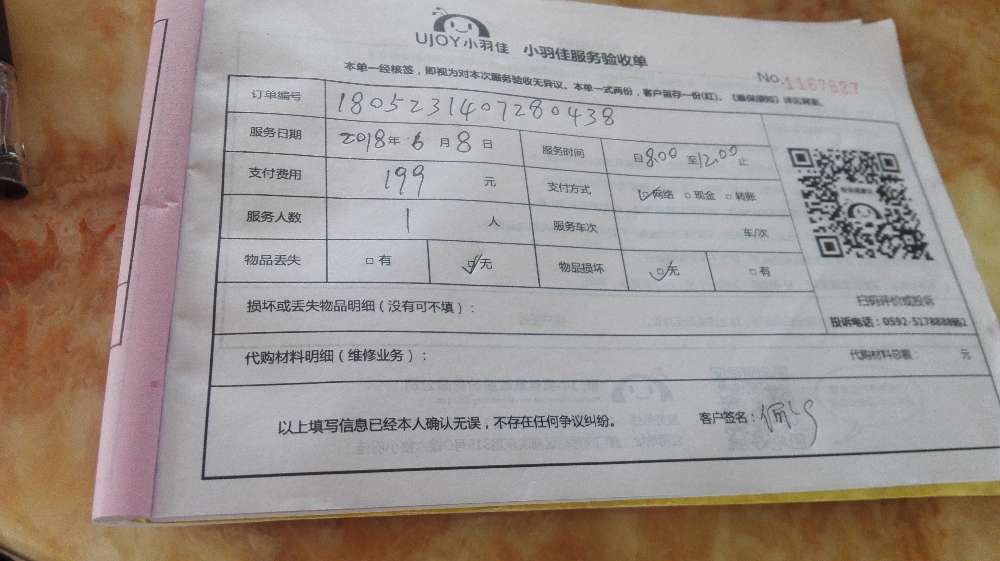 UJOY小羽佳 小羽佳服务验收单
No.1167627
本单一经核签，即视为对本次服务验收无异议。本单一式两份，客户留存一份(红)。
订单编号 1805231407280438
服务日期 2018年 6 月 8 日 服务时间 自8:00 至12:00止
支付费用 199 元 支付方式 ☑网络 □现金 □转账
服务人数 1 人 服务车次 车/次
物品丢失 □有 ☑无 物品损坏 ☑无 □有
扫码评价或投诉
损坏或丢失物品明细（没有可不填）：
投诉电话：0592-5178888
代购材料明细（维修业务）： 代购材料总额： 元
以上填写信息已经本人确认无误，不存在任何争议纠纷。 客户签名：